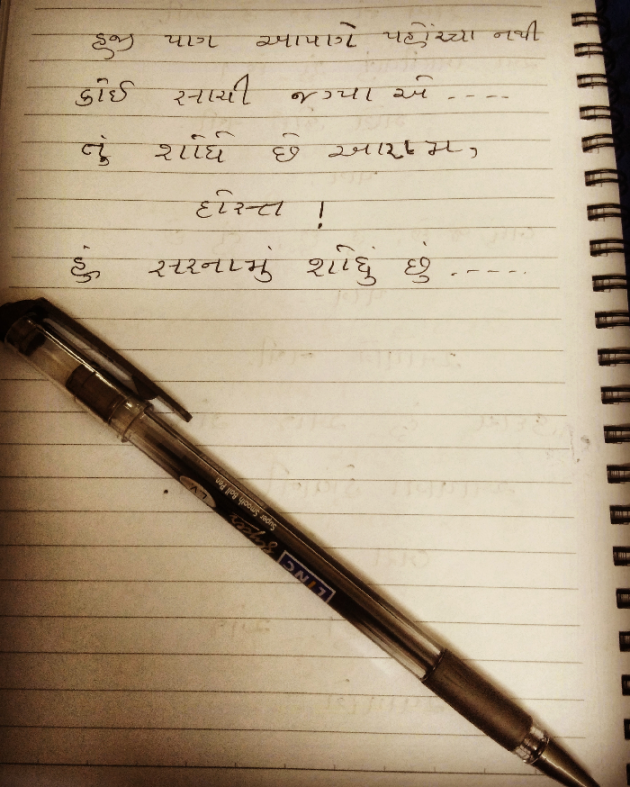 હજી પાગ આપાગે પહોંચ્યા નથી
કોઈ સાચી જગ્યા એ ----
તું શોધે છે આરામ,
દોસ્ત !
હું સરનામું શોધું છું .----.
LINC
Super Smooth Ball Pen